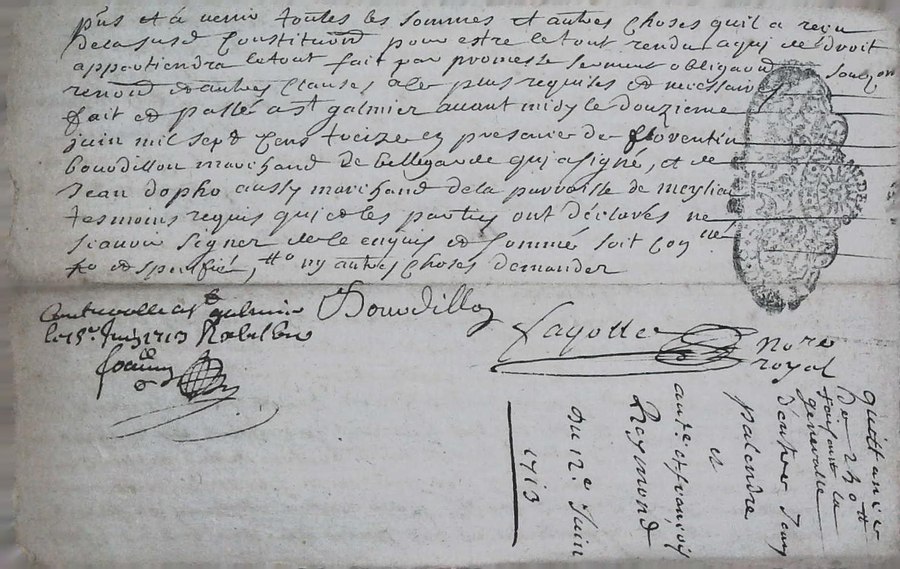 pnt et a venir toutes les sommes et autres choses quil a reçu
de la susd constituond pour estre le tout rendu a qui de droit
appartiendra le tout fait par promesse serment obligaond
renond et autres clauses a le plus requises et necessaires
fait et passé a st galmier avant midy le douzieme
juin mil sept cens treize en presence de floventin
bourdillon marchand de bellegarde qui a signé, et de
Jean dopho aussy marchand de la parroisse de meylieu
tesmoins requis qui et les partyes ont déclarés ne
scavoir signer de ce enquis et sommé soit con né
ro et speciffié, ny autres choses demander
Controllé a st galmier
le 15e Juin 1713
Bourdillon
fayolle
Nore
royal
quittance
de 240 tt
faisant la
generalle
dentre Jean
palendre
et
antre et françois
Raymond
du 12e Juin
1713